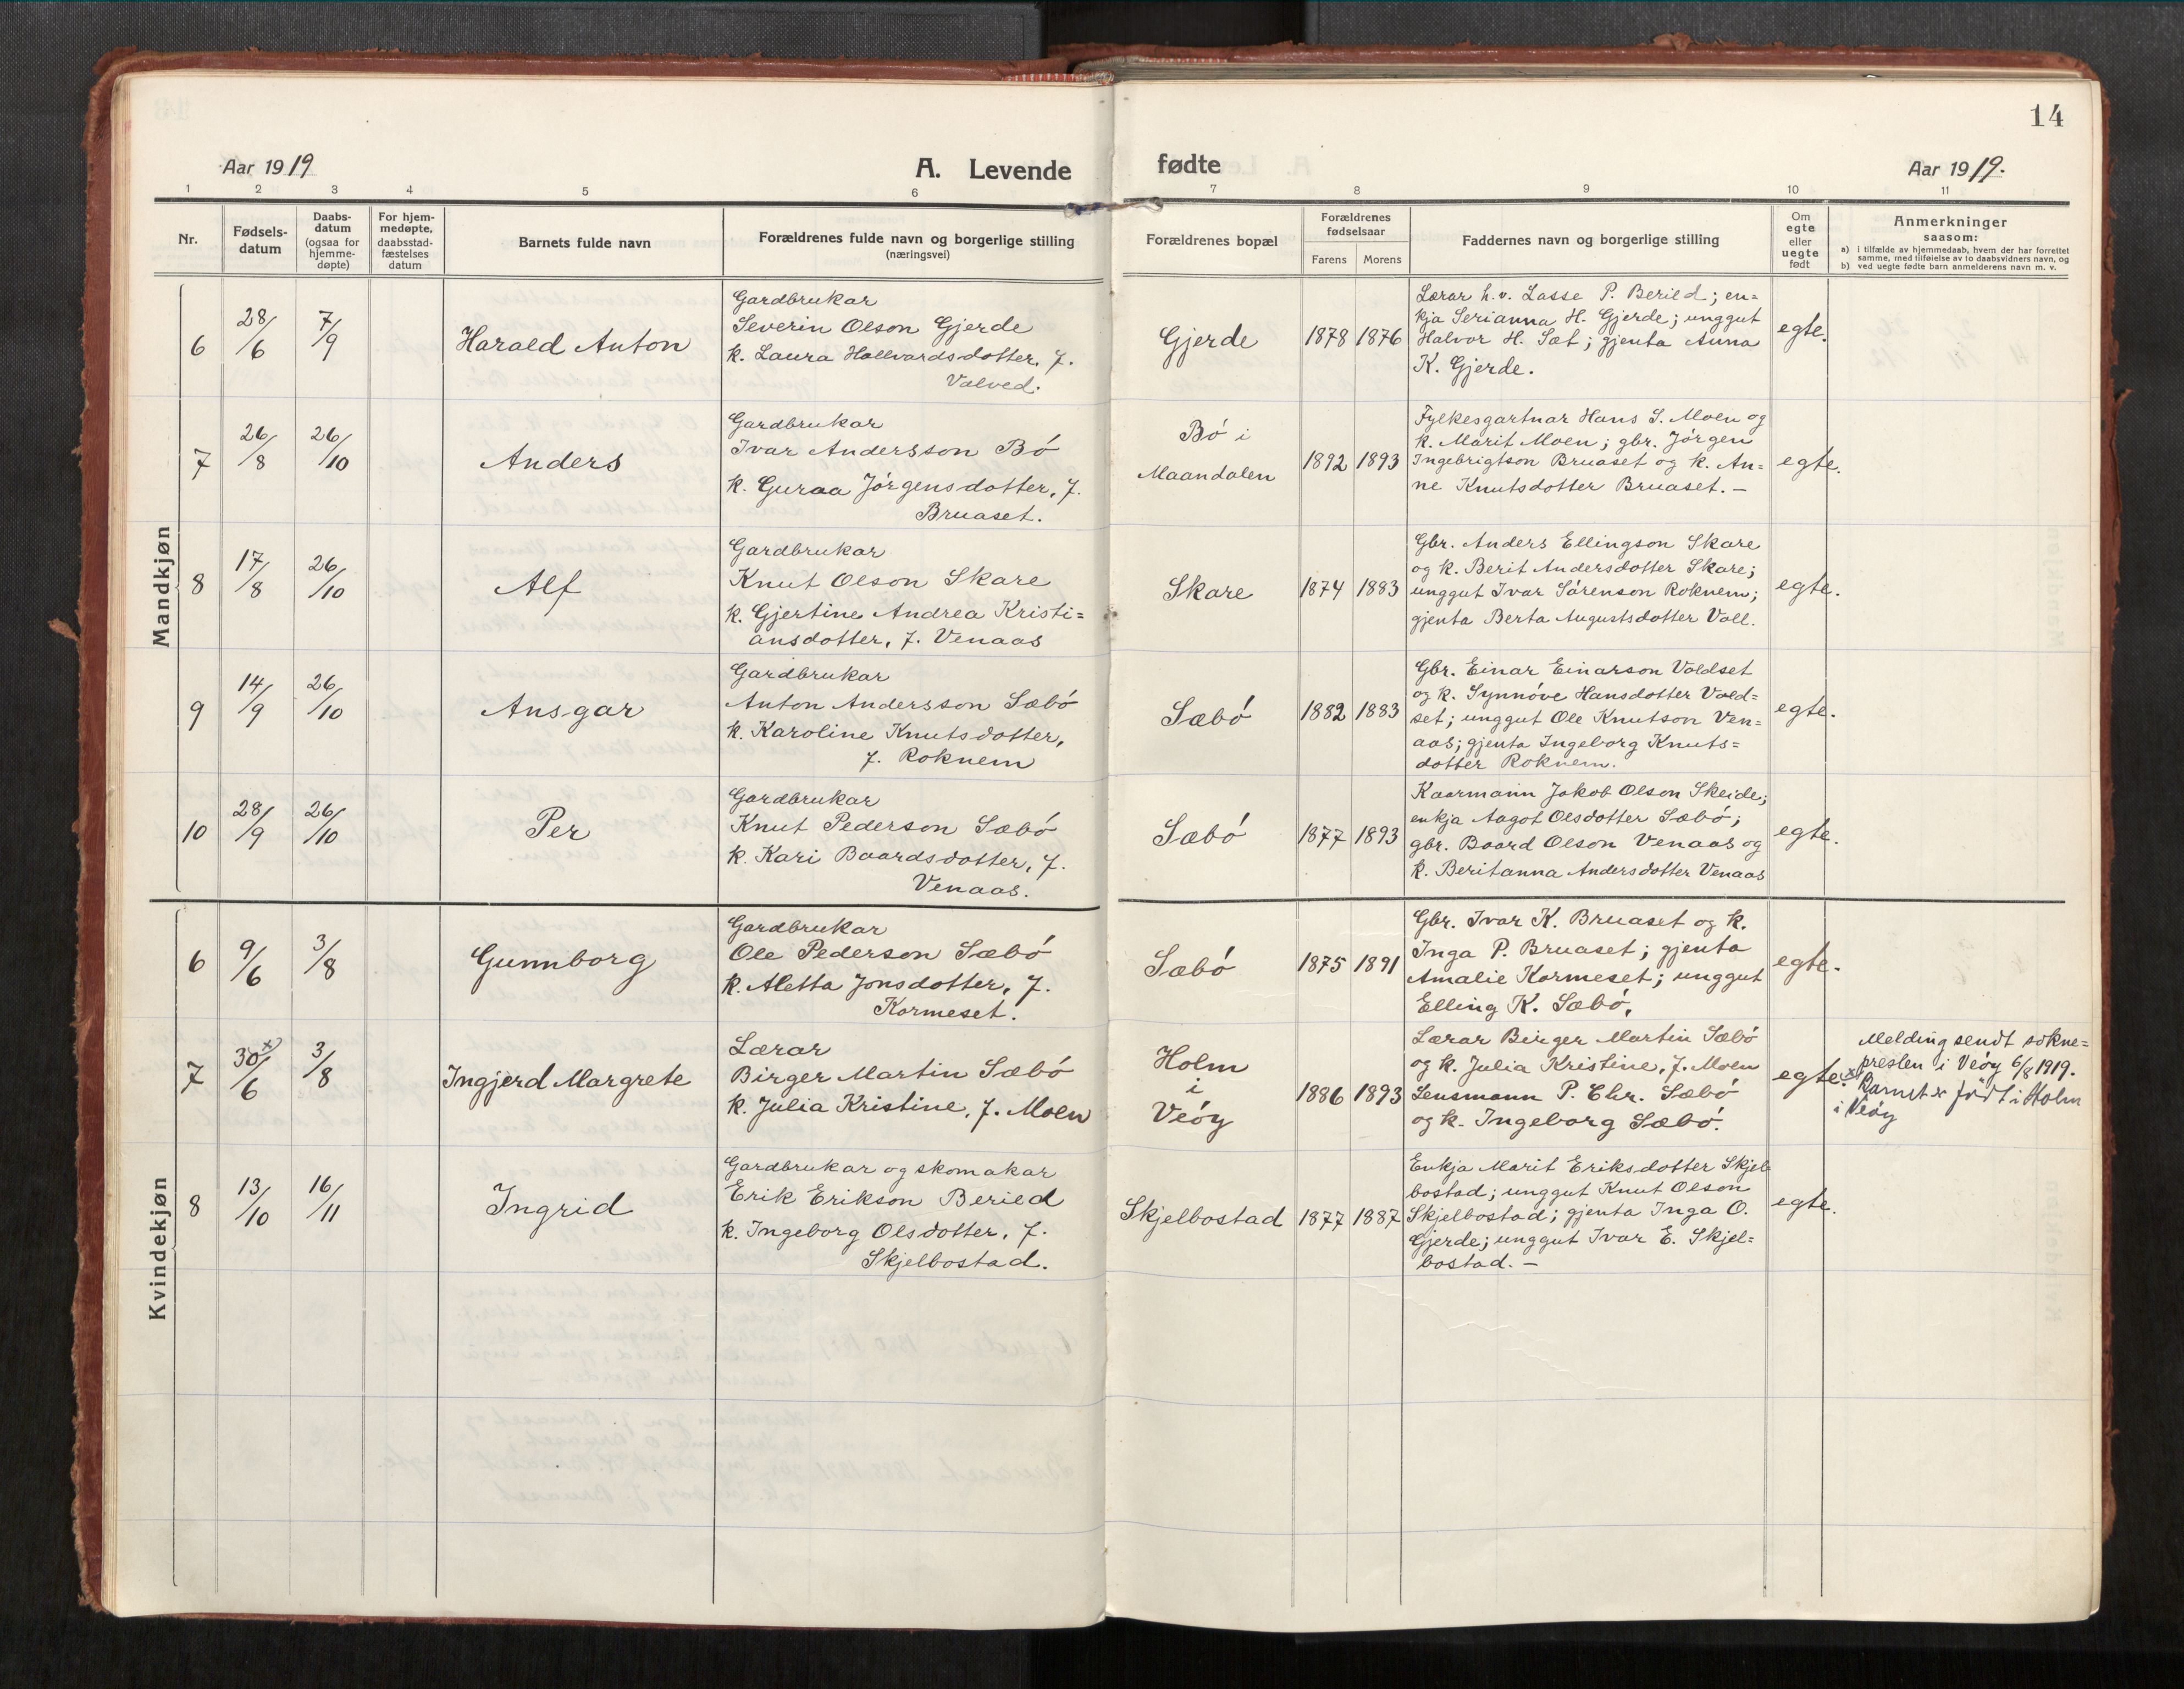 14
Aar 1919
A. Levende
fødte
Aar 1919.
1 2 3 4 5 6 7 8 9 10 11
Nr.
Fødsels-
datum
Daabs-
datum
(ogsaa for
hjemme-
døpte)
For hjem-
medøpte,
daabsstad-
fæstelses
datum
Barnets fulde navn
Forældrenes fulde navn og borgerlige stilling
(næringsvei)
Forældrenes bopæl
Forældrenes
fødselsaar
Farens Morens
Faddernes navn og borgerlige stilling
Om
egte
eller
uegte
født
Anmerkninger
saasom:
a) i tilfælde av hjemmedaab, hvem der har forrettet
samme, med tilføielse av to daabsvidners navn, og
b) ved uegte fødte barn anmelderens navn m. v.
Mandkjøn
6
28/6
7/9
Harald Anton
Gardbrukar
Severin Olson Gjerde
k. Laura Hallvardsdotter, f.
Valved.
Gjerde
1878 1876
Lærar h.v. Lasse P. Berild; en=
kja Serianna H. Gjerde; unggut
Halvor H. Sæt; gjenta Anna
K. Gjerde.
egte.
7
26/8
26/10
Anders
Gardbrukar
Ivar Andersson Bó
k. Guraa Jórgensdotter, f.
Bruaset.
Bó i
Maandalen
1892 1893
Fylkesgartnar Hans S. Moen og
k. Marit Moen; gbr. Jórgen
Ingebrigtson Bruaset og k. An=
ne Knutsdotter Bruaset. —
egte.
8
17/8
26/10
Alf
Gardbrukar
Knut Olson Skare
k. Gjertine Andrea Kristi=
ansdotter, f. Venaas
Skare
1874 1883
Gbr. Anders Ellingson Skare
og k. Berit Andersdotter Skare;
unggut Ivar Sórenson Roknem;
gjenta Berta Augustsdotter Voll.
egte.
9
14/9
26/10
Ansgar
Gardbrukar
Anton Andersson Sæbó
k. Karoline Knutsdotter,
f. Roknem
Sæbó
1882 1883
Gbr. Einar Einarson Voldset
og k. Synnóve Hansdotter Vold=
set; unggut Ole Knutson Ven=
aas; gjenta Ingeborg Knuts=
dotter Roknem.
egte.
10
28/9
26/10
Per
Gardbrukar
Knut Pederson Sæbó
k. Kari Baardsdotter, f.
Venaas.
Sæbó
1877 1893
Kaarmann Jakob Olson Skeide;
enkja Aagot Olsdotter Sæbó;
gbr. Baard Olson Venaas og
k. Beritanna Andersdotter Venaas
egte.
Kvindekjøn
6
9/6
3/8
Gunnborg
Gardbrukar
Ole Pederson Sæbó
k. Aletta Jonsdotter, f.
Kormeset.
Sæbó
1875 1891
Gbr. Ivar K. Bruaset og k.
Inga P. Bruaset; gjenta
Amalie Kormeset; unggut
Elling K. Sæbó.
egte.
7
30/6 x)
3/8
Ingjerd Margrete
Lærar
Birger Martin Sæbó
k. Julia Kristine, f. Moen
Holm
i
Veóy
1886 1893
Lærar Birger Martin Sæbó
og k. Julia Kristine, f. Moen
Lensmann P. Chr. Sæbó
og k. Ingeborg Sæbó.
egte.
Melding sendt sokne=
presten i Veóy 6/8 1919.
x) Barnet er født i Holm
i Veóy
8
13/10
16/11
Ingrid
Gardbrukar og skomakar
Erik Erikson Berild
k. Ingeborg Olsdotter, f.
Skjelbostad.
Skjelbostad
1877 1887
Enkja Marit Eriksdotter Skjel
bostad; unggut Knut Olson
Skjelbostad; gjenta Inga O.
Gjerde; unggut Ivar E. Skjel=
bostad. —
egte.